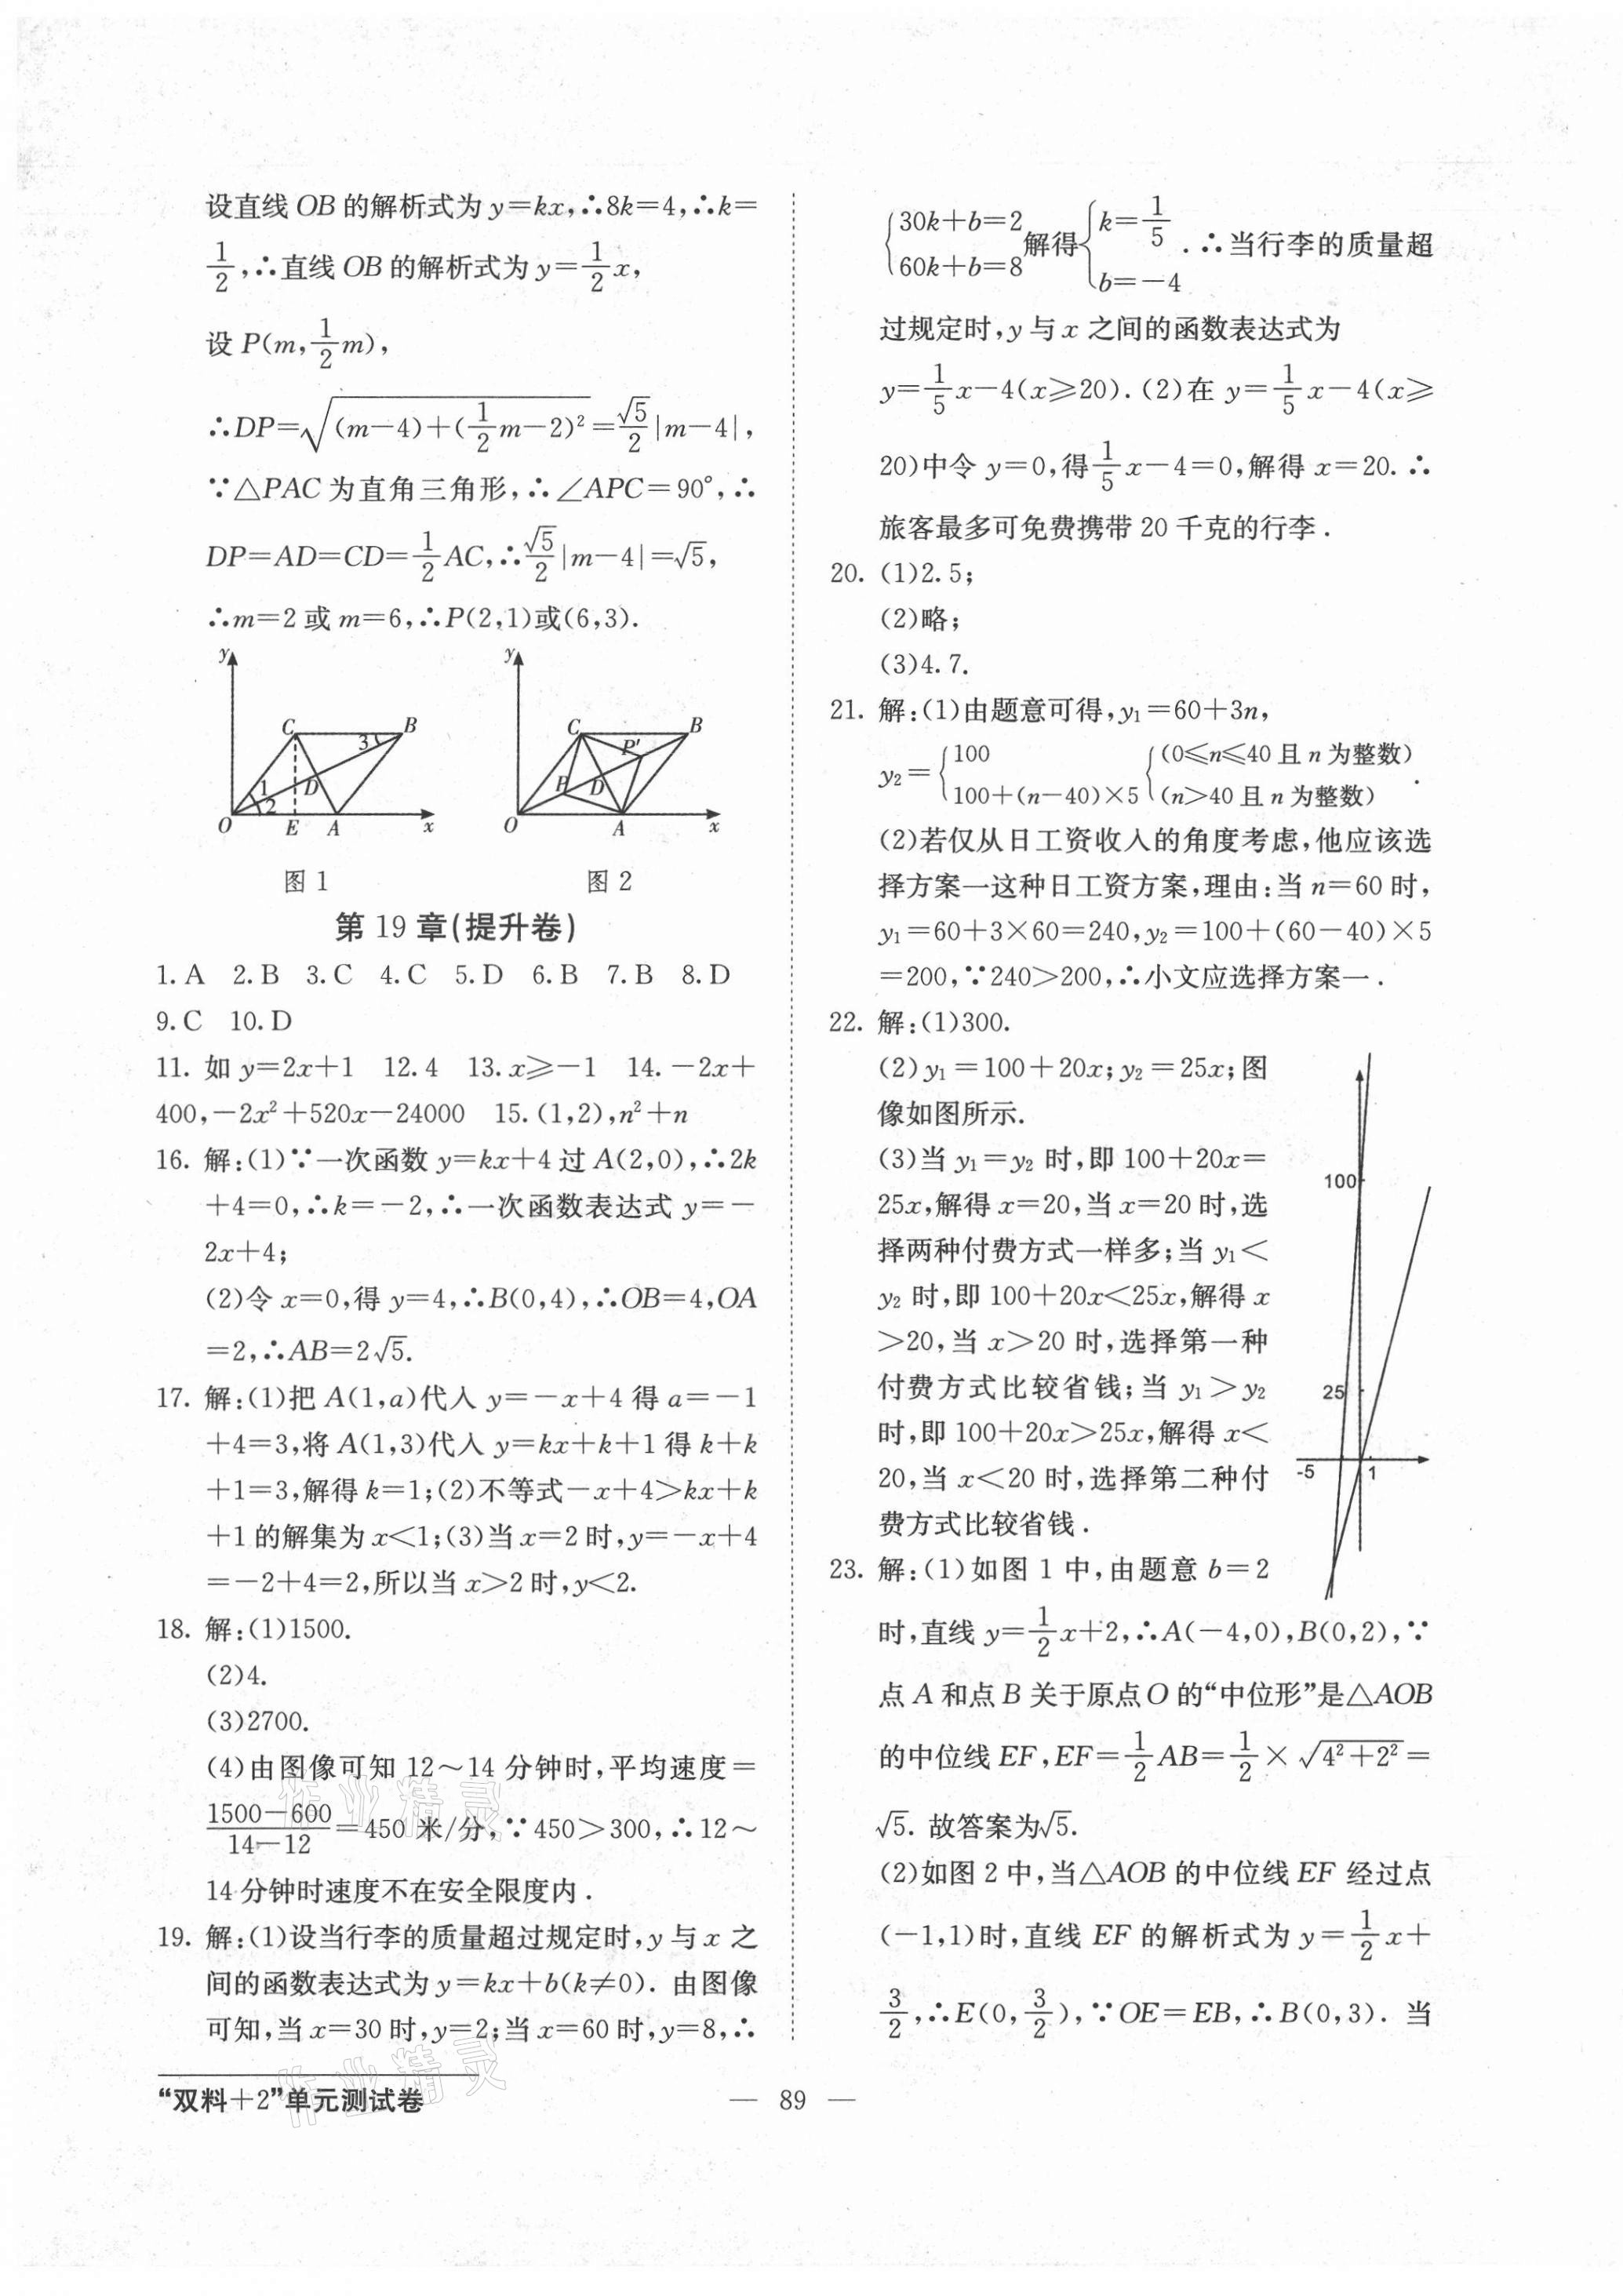 设直线 OB 的解析式为 y=kx,∴8k=4,∴k=
1/2,∴直线 OB 的解析式为 y=1/2x,
设 P(m,1/2m),
∴DP=√((m-4)+(1/2m-2)²)=√5/2|m-4|,
∵△PAC 为直角三角形,∴∠APC=90°,∴
DP=AD=CD=1/2AC,∴√5/2|m-4|=√5,
∴m=2 或 m=6,∴P(2,1)或(6,3).
y C B 3 1 2 D O E A x
y C B P′ P D O A x
图 1 图 2
第 19 章(提升卷)
1. A 2. B 3. C 4. C 5. D 6. B 7. B 8. D
9. C 10. D
11. 如 y=2x+1 12. 4 13. x≥-1 14. -2x+
400,-2x²+520x-24000 15. (1,2),n²+n
16. 解:(1)∵一次函数 y=kx+4 过 A(2,0),∴2k
+4=0,∴k=-2,∴一次函数表达式 y=-
2x+4;
(2)令 x=0,得 y=4,∴B(0,4),∴OB=4,OA
=2,∴AB=2√5.
17. 解:(1)把 A(1,a)代入 y=-x+4 得 a=-1
+4=3,将 A(1,3)代入 y=kx+k+1 得 k+k
+1=3,解得 k=1;(2)不等式-x+4>kx+k
+1 的解集为 x<1;(3)当 x=2 时,y=-x+4
=-2+4=2,所以当 x>2 时,y<2.
18. 解:(1)1500.
(2)4.
(3)2700.
(4)由图像可知 12～14 分钟时,平均速度=
(1500-600)/(14-12)=450 米/分,∵450>300,∴12～
14 分钟时速度不在安全限度内.
19. 解:(1)设当行李的质量超过规定时,y 与 x 之
间的函数表达式为 y=kx+b(k≠0). 由图像
可知,当 x=30 时,y=2;当 x=60 时,y=8,∴
{30k+b=2 60k+b=8 解得{k=1/5 b=-4 .∴当行李的质量超
过规定时,y 与 x 之间的函数表达式为
y=1/5x-4(x≥20). (2)在 y=1/5x-4(x≥
20)中令 y=0,得1/5x-4=0,解得 x=20. ∴
旅客最多可免费携带 20 千克的行李.
20. (1)2.5;
(2)略;
(3)4.7.
21. 解:(1)由题意可得,y₁=60+3n,
y₂={100 {(0≤n≤40 且 n 为整数)
100+(n-40)×5 (n>40 且 n 为整数) .
(2)若仅从日工资收入的角度考虑,他应该选
择方案一这种日工资方案,理由:当 n=60 时,
y₁=60+3×60=240,y₂=100+(60-40)×5
=200,∵240>200,∴小文应选择方案一.
22. 解:(1)300.
(2)y₁=100+20x;y₂=25x;图
像如图所示.
(3)当 y₁=y₂ 时,即 100+20x=
25x,解得 x=20,当 x=20 时,选
择两种付费方式一样多;当 y₁<
y₂ 时,即 100+20x<25x,解得 x
>20,当 x>20 时,选择第一种
付费方式比较省钱;当 y₁>y₂
时,即 100+20x>25x,解得 x<
20,当 x<20 时,选择第二种付
费方式比较省钱.
100
25
-5 1
23. 解:(1)如图 1 中,由题意 b=2
时,直线 y=1/2x+2,∴A(-4,0),B(0,2),∵
点 A 和点 B 关于原点 O 的“中位形”是△AOB
的中位线 EF,EF=1/2AB=1/2×√(4²+2²)=
√5. 故答案为√5.
(2)如图 2 中,当△AOB 的中位线 EF 经过点
(-1,1)时,直线 EF 的解析式为 y=1/2x+
3/2,∴E(0,3/2),∵OE=EB,∴B(0,3). 当
作业精灵
作业精灵
“双料+2”单元测试卷
— 89 —